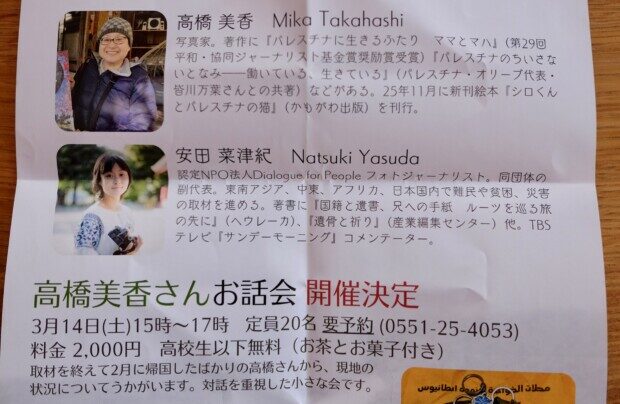 高橋 美香　Mika Takahashi
写真家。著作に『パレスチナに生きるふたり　ママとマハ』(第29回
平和・協同ジャーナリスト基金賞奨励賞受賞)『パレスチナのちいさな
いとなみ――働いている、生きている』(パレスチナ・オリーブ代表・
皆川万葉さんとの共著)などがある。25年11月に新刊絵本『シロくん
とパレスチナの猫』(かもがわ出版)を刊行。
安田 菜津紀　Natsuki Yasuda
認定NPO法人Dialogue for People フォトジャーナリスト。同団体の
副代表。東南アジア、中東、アフリカ、日本国内で難民や貧困、災害
の取材を進める。著書に『国籍と遺書、兄への手紙　ルーツを巡る旅
の先に』(ヘウレーカ)、『遺骨と祈り』(産業編集センター)他。TBS
テレビ『サンデーモーニング』コメンテーター。
高橋美香さんお話会 開催決定
3月14日(土)15時〜17時　定員20名 要予約 (0551-25-4053)
料金 2,000円　高校生以下無料(お茶とお菓子付き)
取材を終えて2月に帰国したばかりの高橋さんから、現地の
状況についてうかがいます。対話を重視した小さな会です。